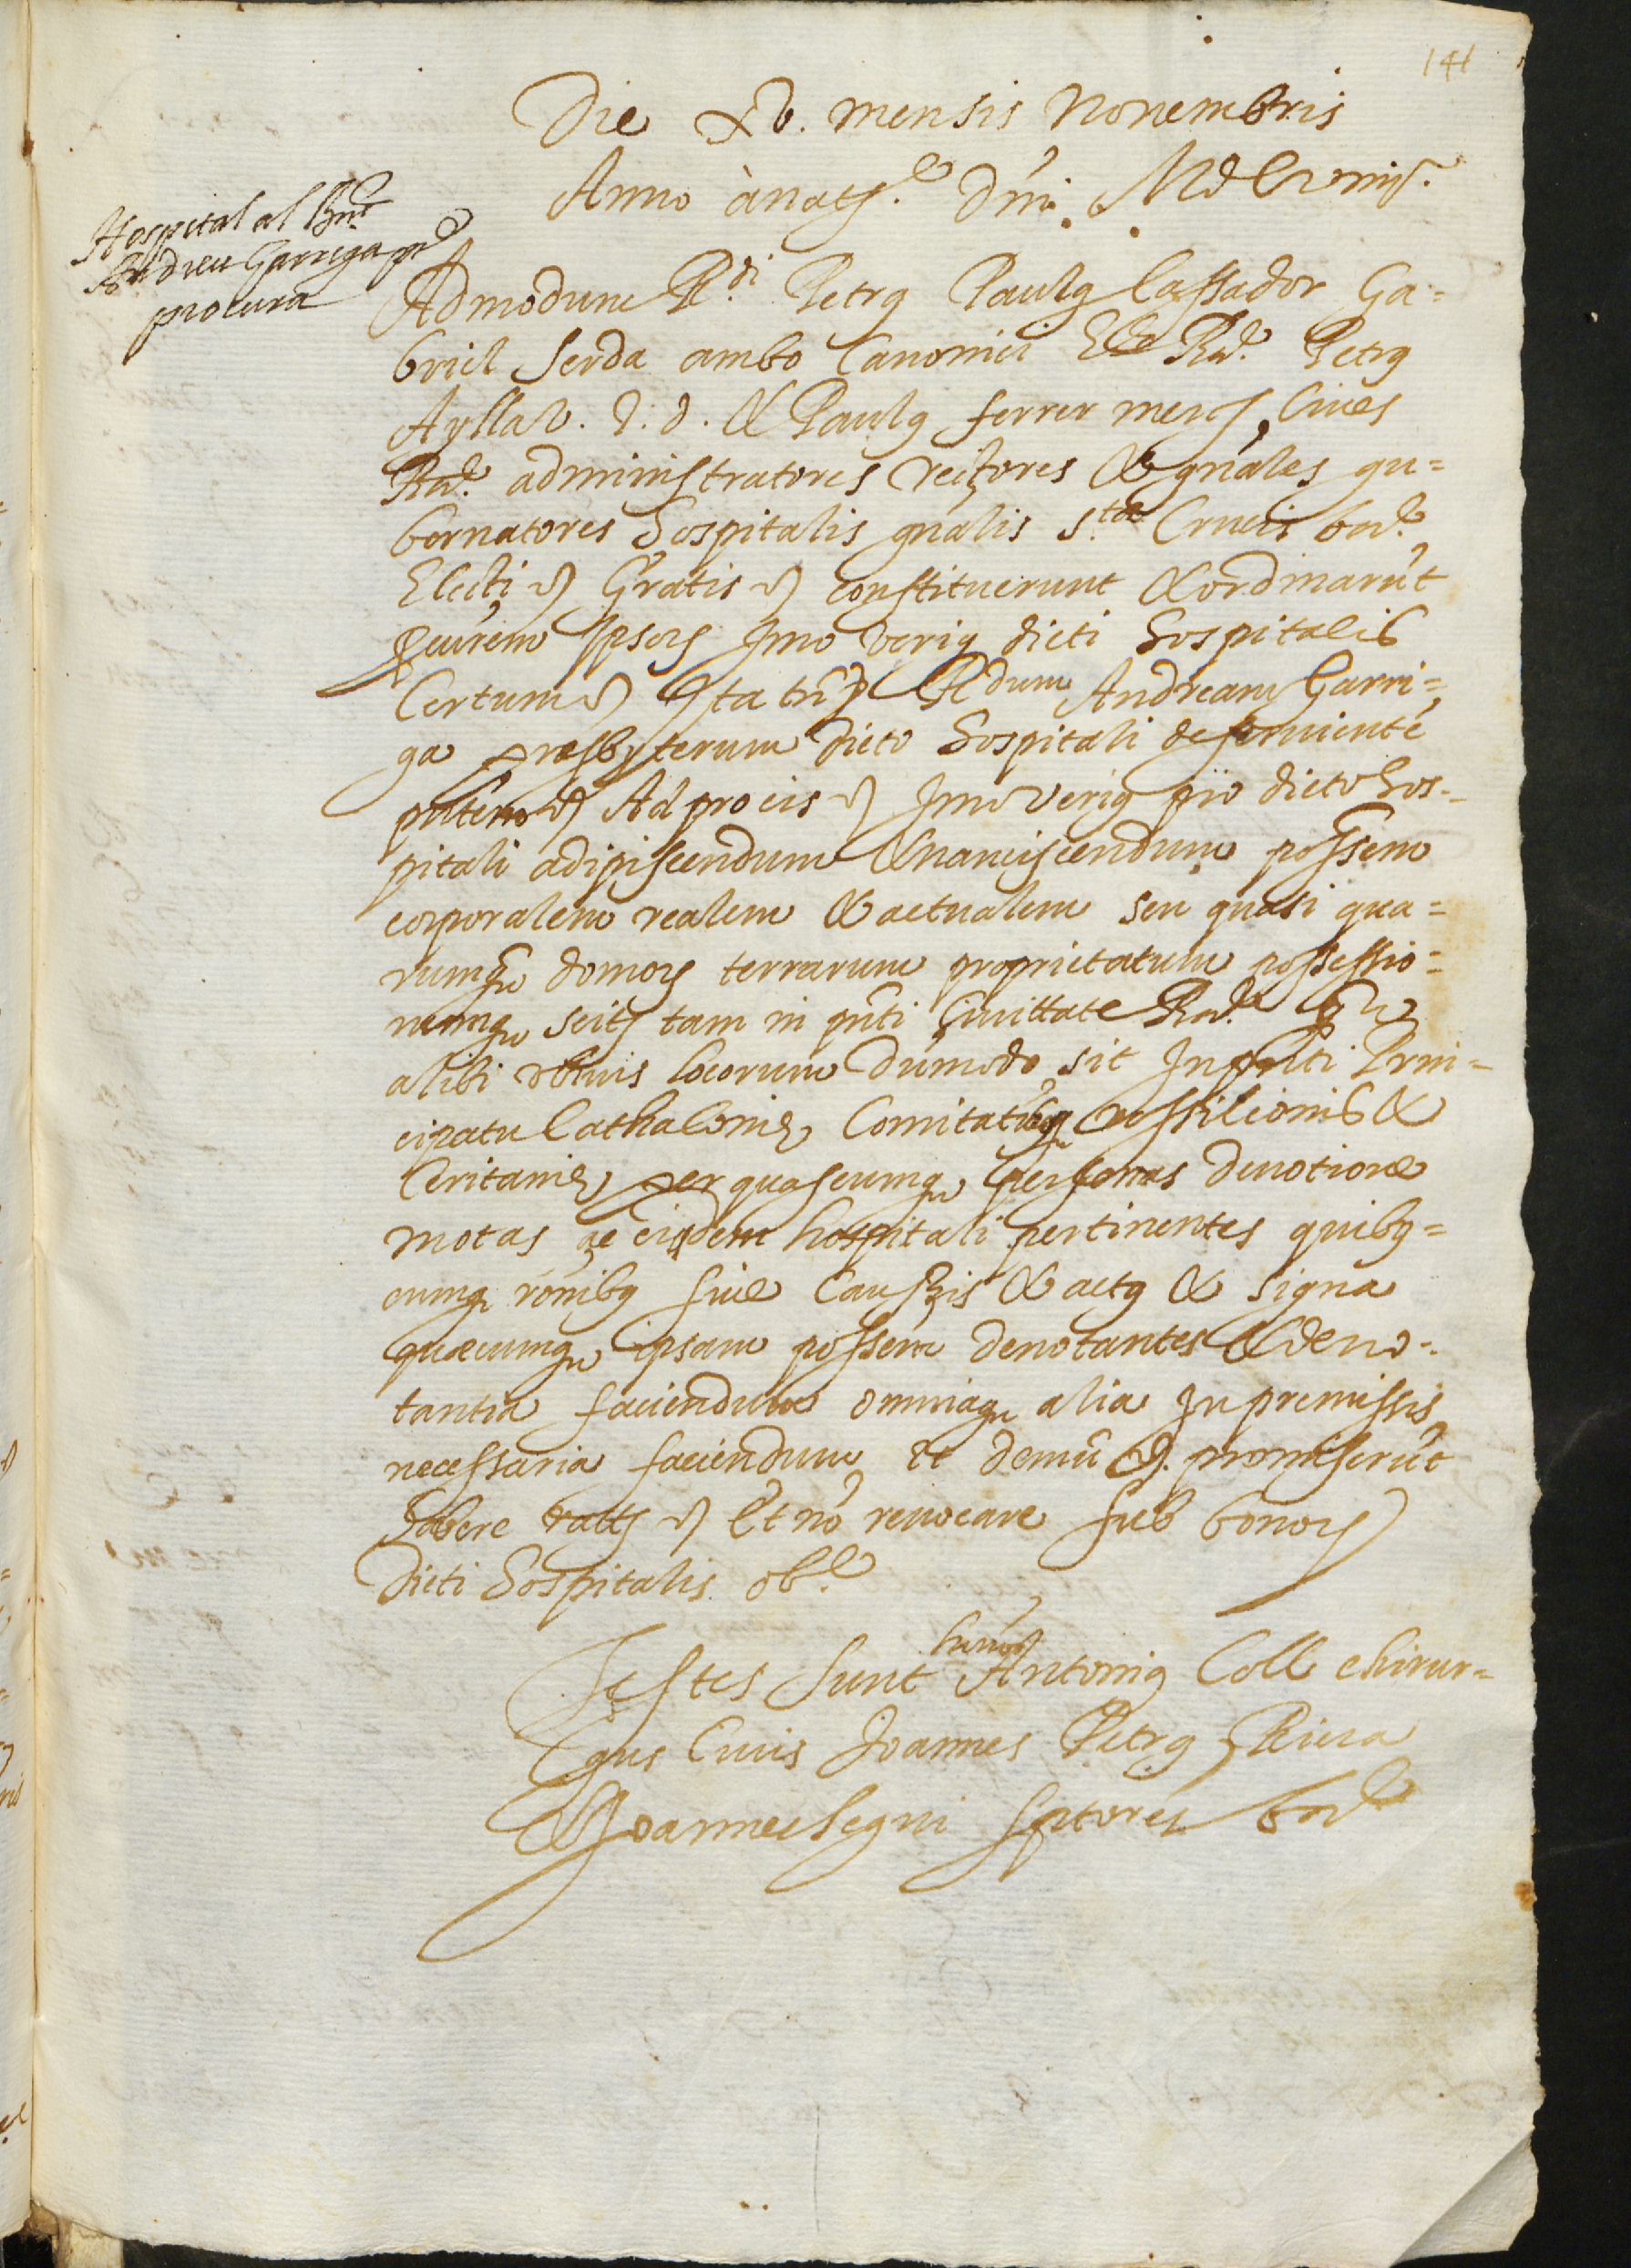 141
Die xv. mensis Novembris
Anno à natt.e Dñi. MDL
Hospital al Rnt
Andreu Garriga pre
procura
Admodum R.di Petrus Paulus Cassador Ga=
briel Serda ambo Canonici Petrus
Aylla v. J. d. & Paulus ferrer merc. Cives
administratores rectores & gñales gu=
bernatores hospitalis gñalis S.tae Crucis
Electi &c Gratis &c constituerunt & ordinarũt
procurem ipsorum Imo verius dicti hospitalis
Certum &c Ita tñ R.dum Andream Garri=
ga præsbyterum dicto hospitali deservientẽ
pñtem &c Ad pro eis &c Imo verius pro dicto hos=
pitali adipiscendum & nanciscendum possem
corporalem realem & actualem seu quasi qua=
rumqu domorum terrarum proprietatum possessio=
numqu tam in pñti Civittate
alibi ubivis locorum dummodo sit In pñti Prin=
cipatu Cathaloniæ Comitatibusqu rossilionis &
Ceritaniæ per quascumqu personas devotione
motas ac eidem hospitali pertinentes quibus=
cumqu rõnibus sive causis & actus & signa
quæcumqu ipsam possem denotantes & deno=
tantia faciendum omniaqu alia In premissis
necessaria faciendum et demũ &c. promiserũt
habere ratt &c Et nõ revocare sub bonorum
dicti hospitalis obl.e
Testes sunt huius Antonius Coll chirur=
gus Civis Joannes Petrus Riera
& Joannes Segui sptores